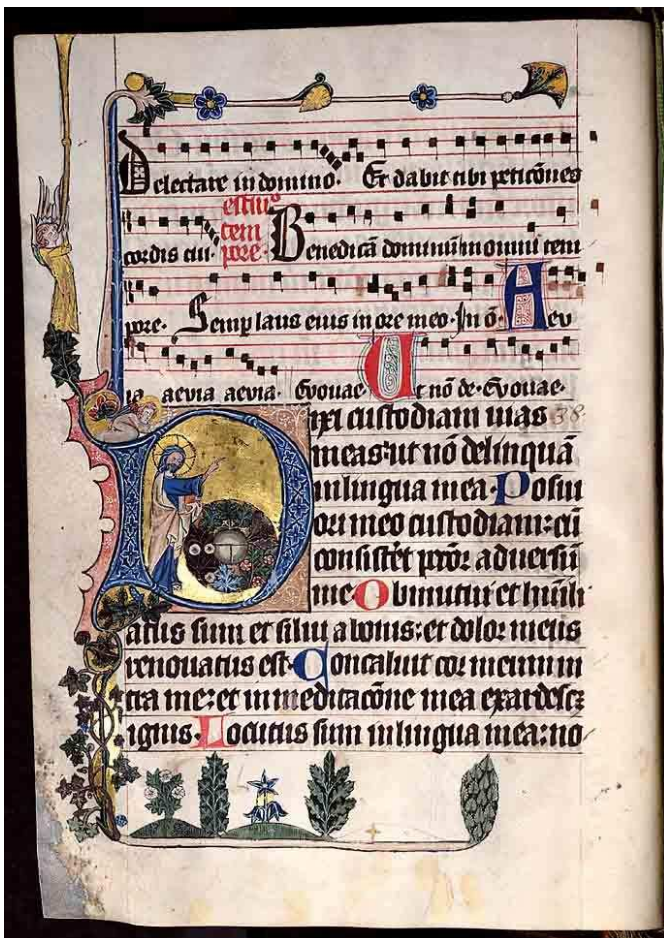 Delectare in domino. Et dabit tibi peticões
cordis tui. estiuo tem pore. Benedicā dominū in omni tem
pore. Semp laus eius in ore meo. In ō. Aeu
ia aeuia aeuia. Euouae. Ut nō de. Euouae.
Dixi custodiam uias 38
meas: ut nō delinquā
in lingua mea. Posui
ori meo custodiam: cū
aduersū
me. Obmutui et humili
atus sum et silui a bonis: et dolor meus
renouatus est. Concaluit cor meum in
tra me: et in meditacōne mea exardescꝫ
ignis. Locutus sum in lingua mea: no